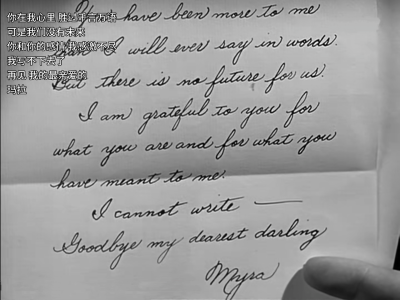 You have been more to me
than I will ever say in words.
But there is no future for us.
I am grateful to you for
what you are and for what you
have meant to me.
I cannot write —
Goodbye my dearest darling
Myra
你在我心里
可是我们没有未来
你和你的
我写不下去了
再见 我的最亲爱的
玛拉